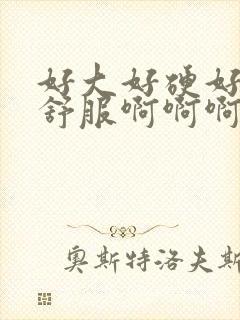 好大好硬好
舒服啊啊啊
奥斯特洛夫斯